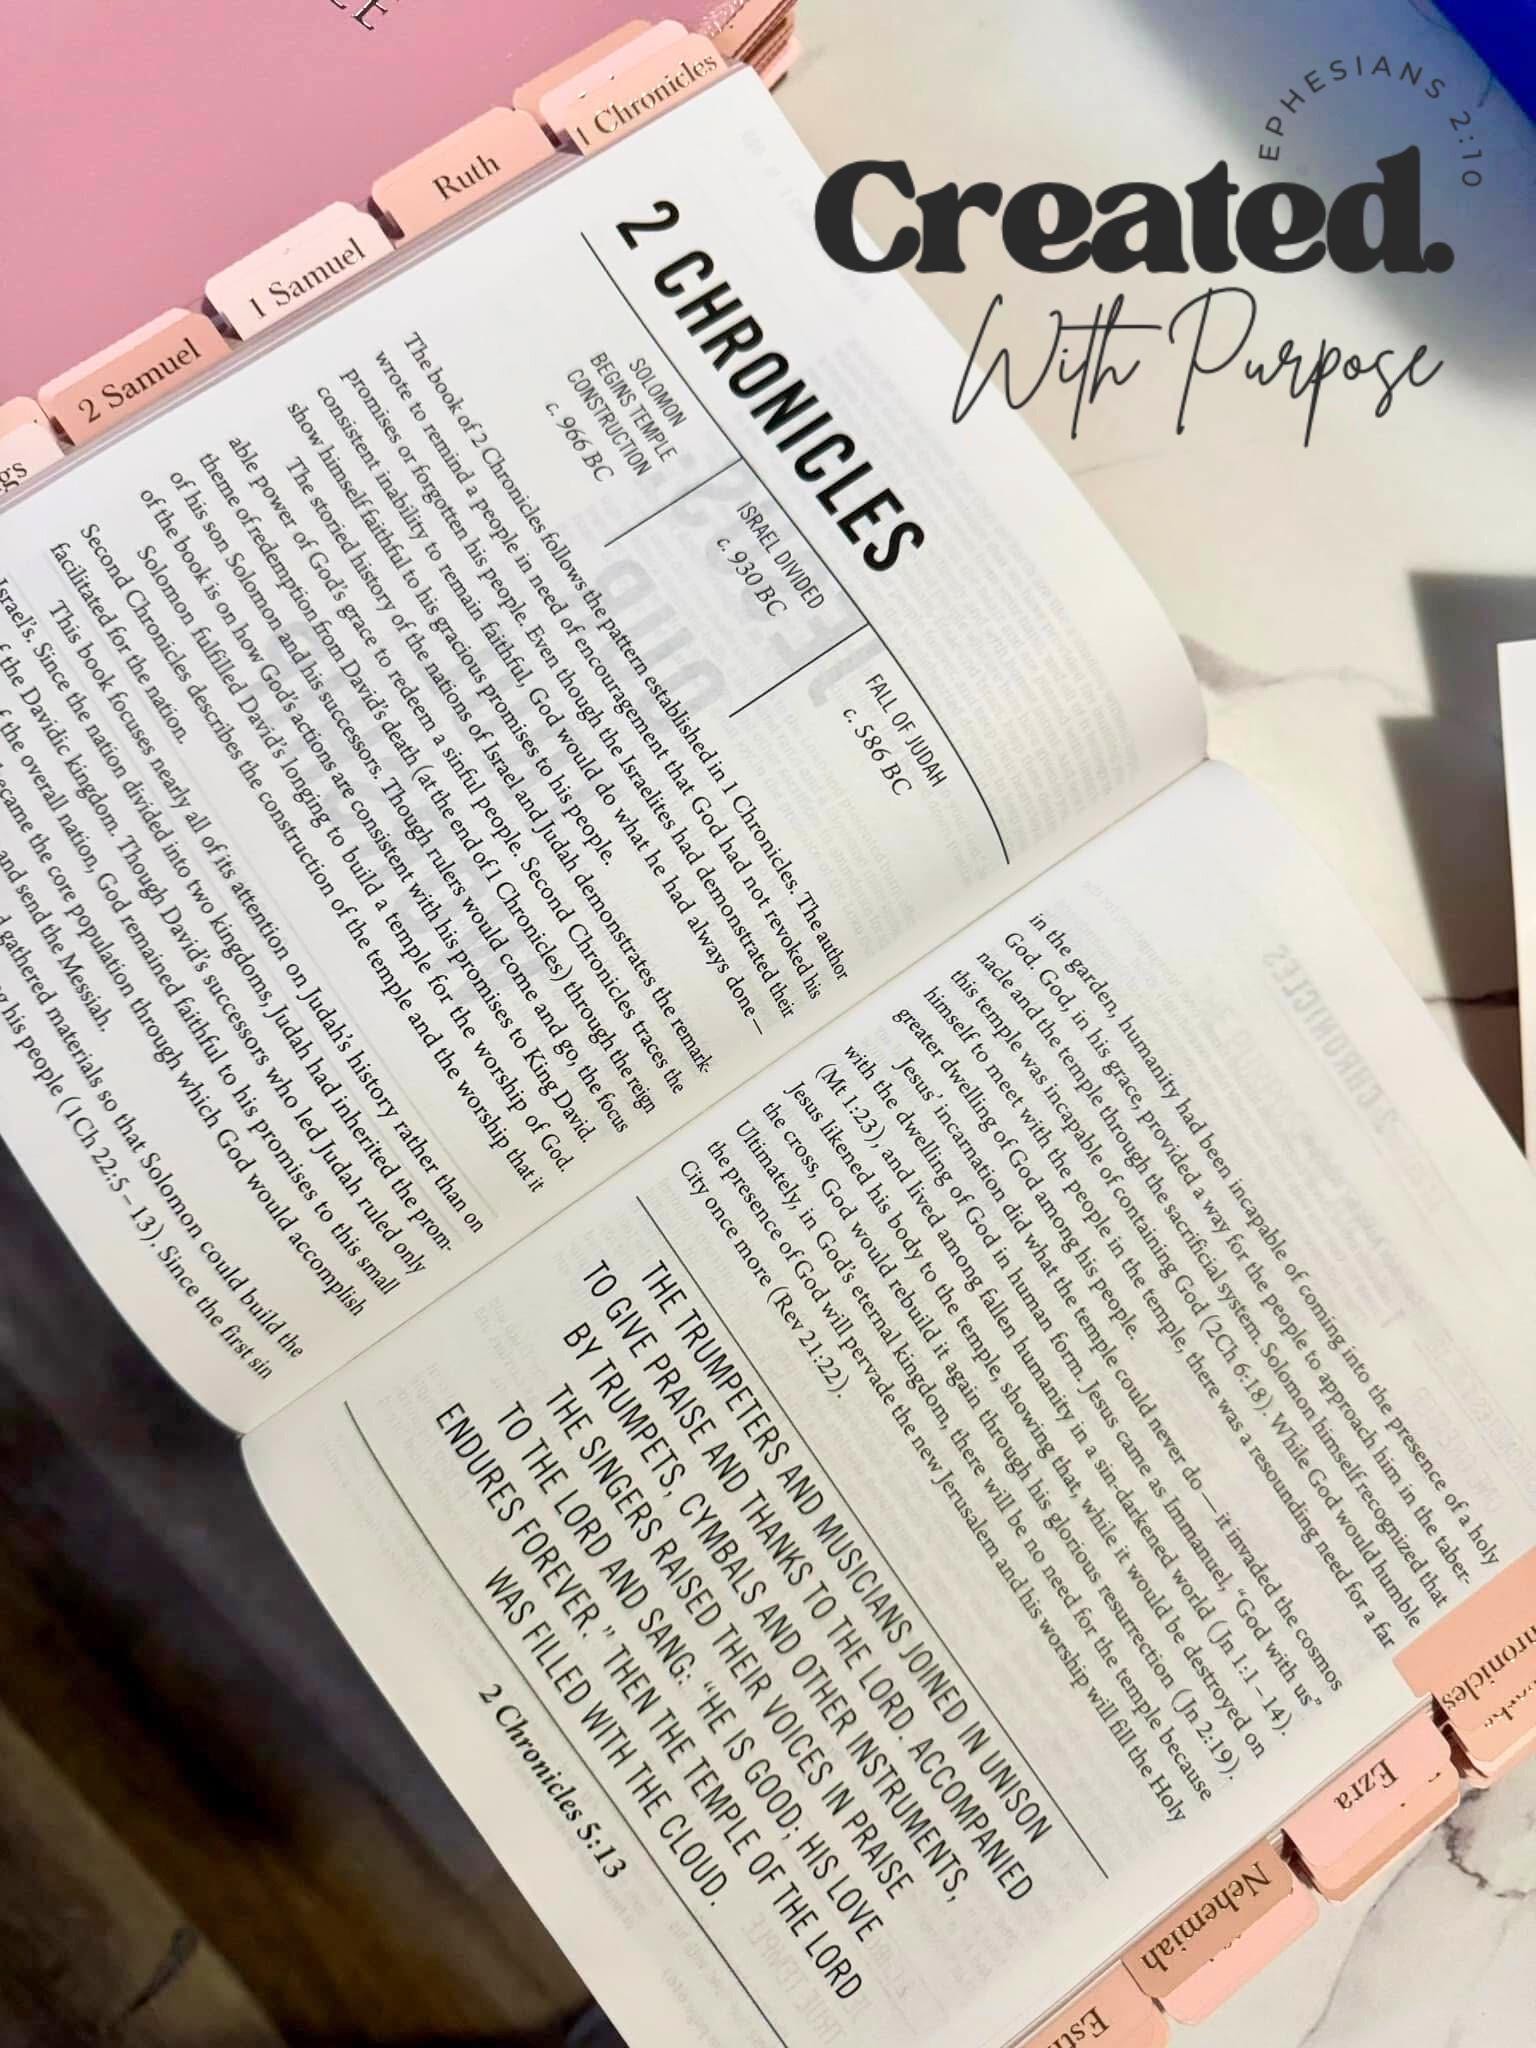 EPHESIANS 2:10
Created.
With Purpose
1 Chronicles
Ruth
1 Samuel
2 Samuel
gs
2 CHRONICLES
SOLOMON
BEGINS TEMPLE
CONSTRUCTION
c. 966 BC
ISRAEL DIVIDED
c. 930 BC
FALL OF JUDAH
c. 586 BC
The book of 2 Chronicles follows the pattern established in 1 Chronicles. The author
wrote to remind a people in need of encouragement that God had not revoked his
promises or forgotten his people. Even though the Israelites had demonstrated their
consistent inability to remain faithful, God would do what he had always done—
show himself faithful to his gracious promises to his people.
The storied history of the nations of Israel and Judah demonstrates the remark-
able power of God's grace to redeem a sinful people. Second Chronicles traces the
theme of redemption from David's death (at the end of 1 Chronicles) through the reign
of his son Solomon and his successors. Though rulers would come and go, the focus
of the book is on how God's actions are consistent with his promises to King David.
Solomon fulfilled David's longing to build a temple for the worship of God.
Second Chronicles describes the construction of the temple and the worship that it
facilitated for the nation.
This book focuses nearly all of its attention on Judah's history rather than on
Israel's. Since the nation divided into two kingdoms, Judah had inherited the prom-
f the Davidic kingdom. Though David's successors who led Judah ruled only
f the overall nation, God remained faithful to his promises to this small
ecame the core population through which God would accomplish
and send the Messiah.
d gathered materials so that Solomon could build the
g his people (1Ch 22:5–13). Since the first sin
in the garden, humanity had been incapable of coming into the presence of a holy
God. God, in his grace, provided a way for the people to approach him in the taber-
nacle and the temple through the sacrificial system. Solomon himself recognized that
this temple was incapable of containing God (2Ch 6:18). While God would humble
himself to meet with the people in the temple, there was a resounding need for a far
greater dwelling of God among his people.
Jesus' incarnation did what the temple could never do—it invaded the cosmos
with the dwelling of God in human form. Jesus came as Immanuel, "God with us"
(Mt 1:23), and lived among fallen humanity in a sin-darkened world (Jn 1:1–14).
Jesus likened his body to the temple, showing that, while it would be destroyed on
the cross, God would rebuild it again through his glorious resurrection (Jn 2:19).
Ultimately, in God's eternal kingdom, there will be no need for the temple because
the presence of God will pervade the new Jerusalem and his worship will fill the Holy
City once more (Rev 21:22).
THE TRUMPETERS AND MUSICIANS JOINED IN UNISON
TO GIVE PRAISE AND THANKS TO THE LORD. ACCOMPANIED
BY TRUMPETS, CYMBALS AND OTHER INSTRUMENTS,
THE SINGERS RAISED THEIR VOICES IN PRAISE
TO THE LORD AND SANG: "HE IS GOOD; HIS LOVE
ENDURES FOREVER." THEN THE TEMPLE OF THE LORD
WAS FILLED WITH THE CLOUD.
2 Chronicles 5:13
Ezra
Nehemiah